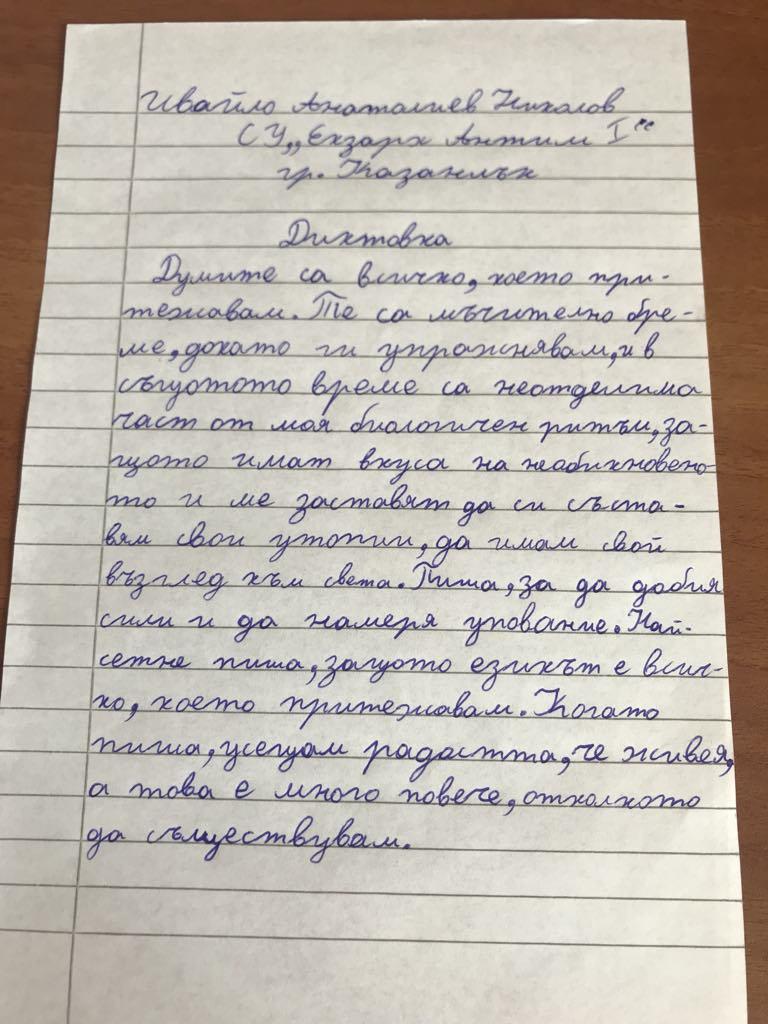 Ивайло Анаталиев Николов
СУ „Екзарх Антим I“
гр. Казанлък
Диктовка
Думите са всичко, което при-
тежавам. Те са мъчително бре-
ме, докато ги упражнявам, и в
същотото време са неотделима
част от моя биологичен ритъм, за-
щото имат вкуса на необикновено-
то и ме заставят да си съста-
вям свои утопии, да имам свой
възглед към света. Пиша, за да добия
сили и да намеря упование. Най-
сетне пиша, защото езикът е всич-
ко, което притежавам. Когато
пиша, усещам радостта, че живея,
а това е много повече, отколкото
да съществувам.